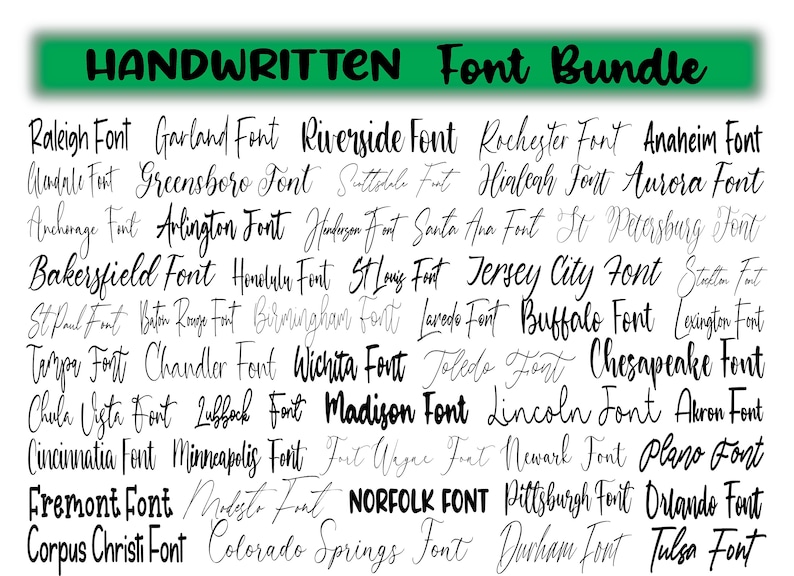 HANDWRITTEN Font Bundle
Raleigh Font Garland Font Riverside Font Rochester Font Anaheim Font
Glendale Font Greensboro Font Scottsdale Font Hialeah Font Aurora Font
Anchorage Font Arlington Font Henderson Font Santa Ana Font St Petersburg Font
Bakersfield Font Honolulu Font St Louis Font Jersey City Font Stockton Font
St Paul Font Baton Rouge Font Birmingham Font Laredo Font Buffalo Font Lexington Font
Tampa Font Chandler Font Wichita Font Toledo Font Chesapeake Font
Chula Vista Font Lubbock Font Madison Font Lincoln Font Akron Font
Cincinnatia Font Minneapolis Font Fort Wayne Font Newark Font Plano Font
Fremont Font Modesto Font NORFOLK FONT Pittsburgh Font Orlando Font
Corpus Christi Font Colorado Springs Font Durham Font Tulsa Font